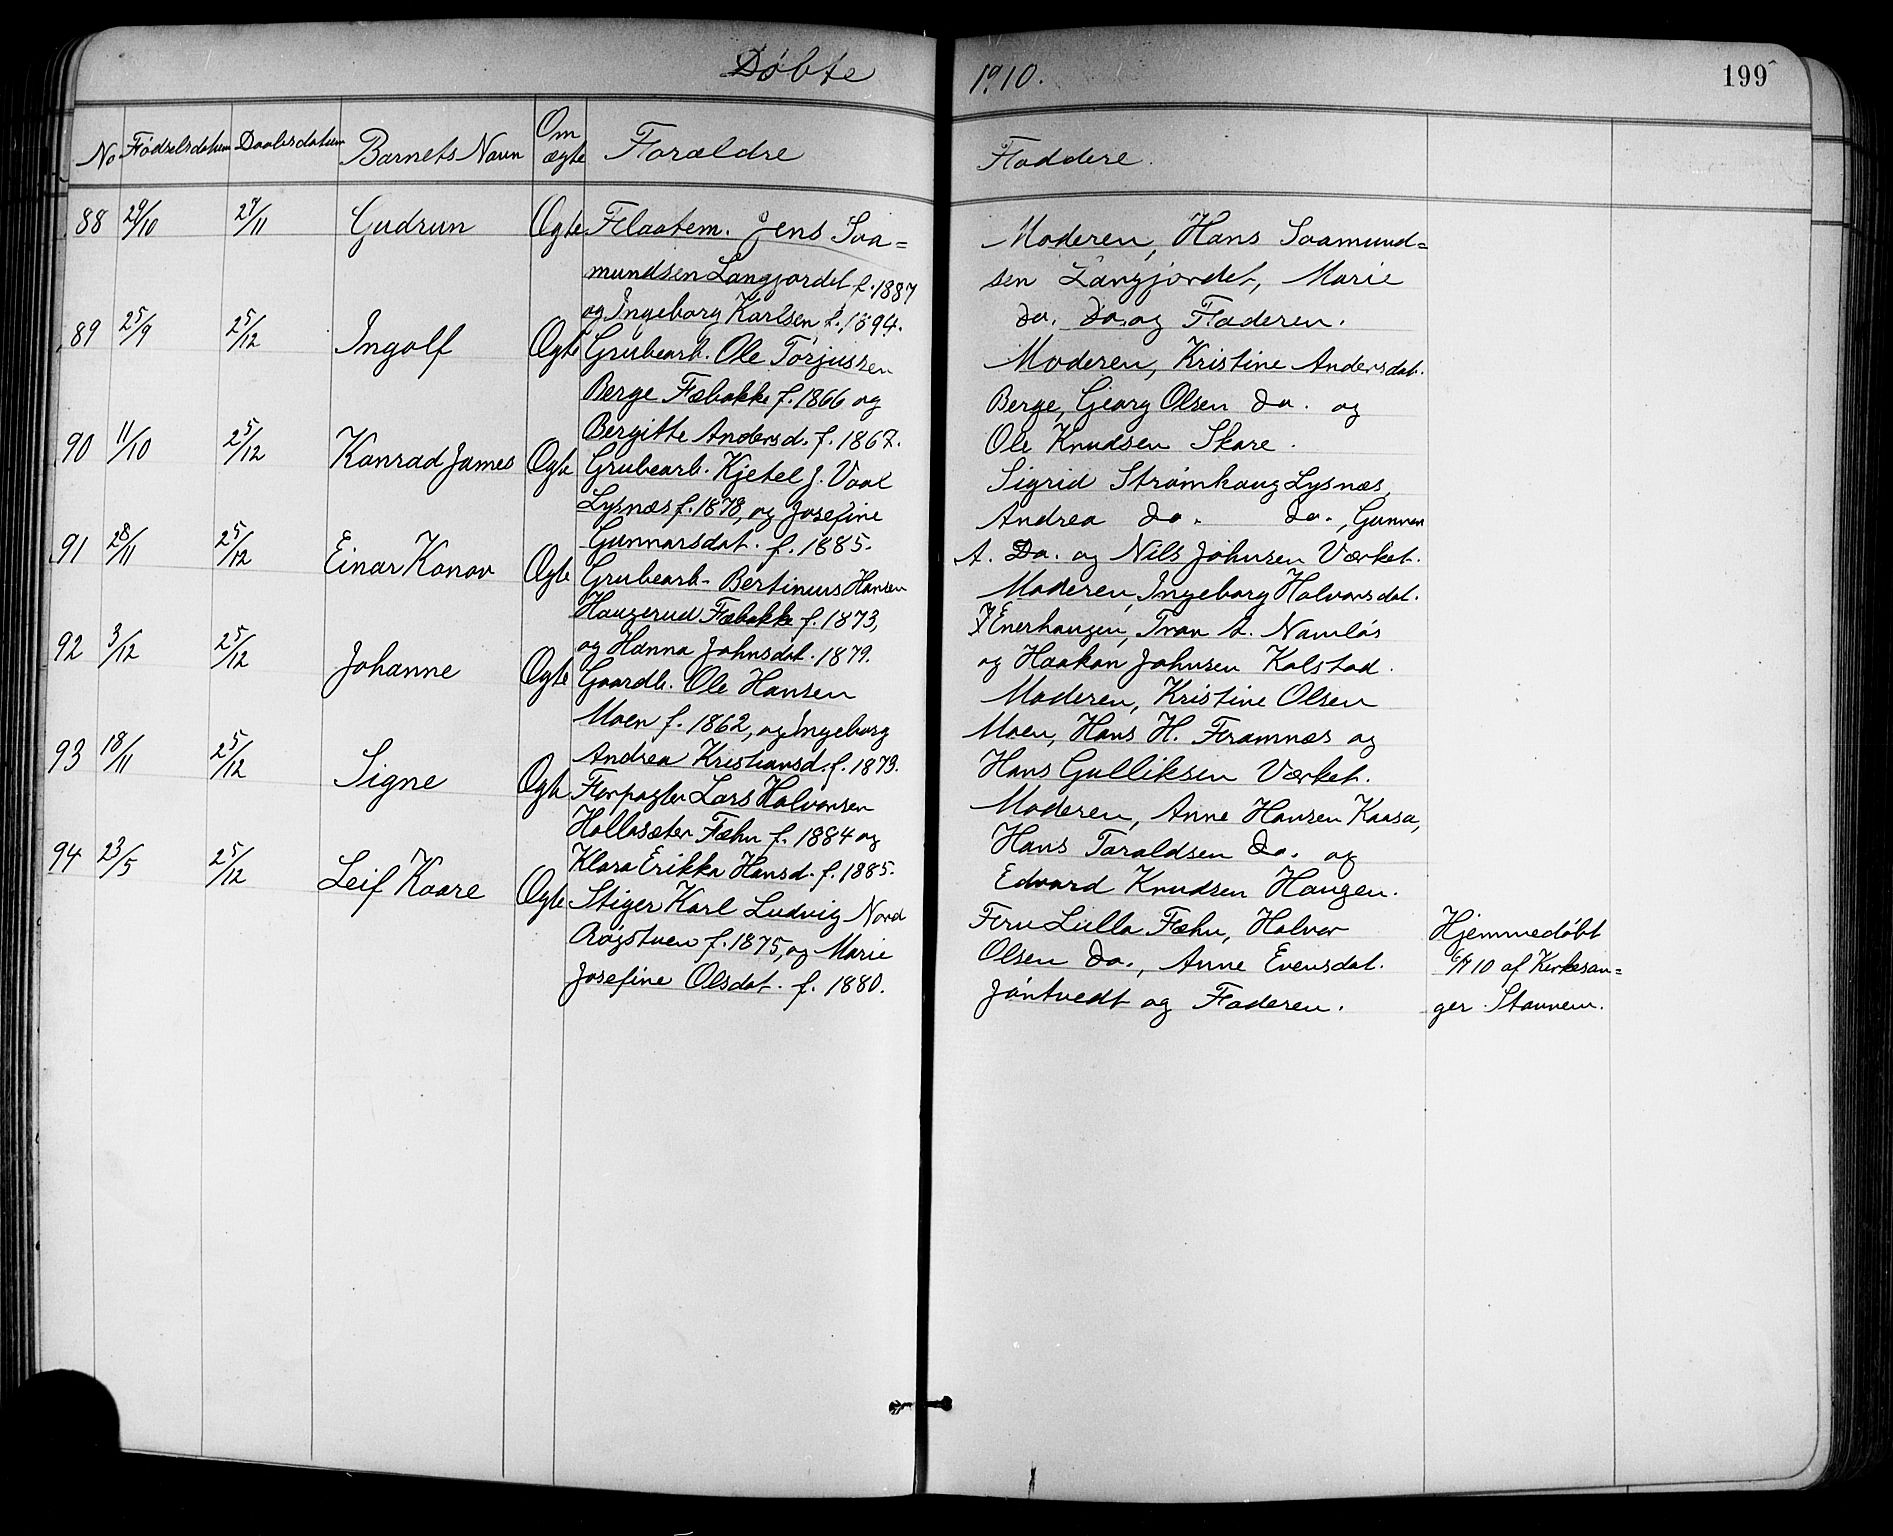 Døbte 1910. 199
No Fødselsdatum Daabsdatum Barnets Navn Om ægte Forældre Faddere.
88 29/10 27/11 Gudrun Ægte Flaatem. Jens Saa=
mundsen Langjordet f. 1887
og Ingeborg Karlsen f. 1894.
Moderen, Hans Saamund=
sen Langjordet, Marie
do. Do. og Faderen.
89 25/9 25/12 Ingolf Ægte Grubearb. Ole Torjussen
Berge Fæbakke f. 1866 og
Bergitte Andersd. f. 1867.
Moderen, Kristine Andersdat.
Berge, Georg Olsen do. og
Ole Knudsen Skare.
90 11/10 25/12 Konrad James Ægte Grubearb. Kjetel J. Vaal
Lysnæs f. 1878, og Josefine
Gunnarsdat. f. 1885.
Sigrid Strømhaug Lysnæs,
Andrea do. do., Gunnar
A. Do. og Nils Johnsen Værket.
91 28/11 25/12 Einar Konov Ægte Grubearb. Bertinius Hansen
Haugerud Fæbakke f. 1873,
og Hanna Johnsdat. 1879.
Moderen, Ingeborg Halvorsdat.
Enerhaugen, Ivar A. Namløs
og Haakon Johnsen Kolstad.
92 3/12 25/12 Johanne Ægte Gaardb. Ole Hansen
Moen f. 1862, og Ingeborg
Andrea Kristiansd. f. 1873.
Moderen, Kristine Olsen
Moen, Hans H. Framnæs og
Hans Gulliksen Værket.
93 18/11 25/12 Signe Ægte Forpagter Lars Halvorsen
Hollasæter Fæhn f. 1884 og
Klara Erikka Hansd. f. 1885.
Moderen, Anne Hansen Kaasa,
Hans Taraldsen do. og
Edvard Knudsen Haugen.
94 23/5 25/12 Leif Kaare Ægte Stiger Karl Ludvig Nord
Røgstuen f. 1875, og Marie
Josefine Olsdat. f. 1880.
Fru Lulla Fæhn, Halvor
Olsen do., Anne Evensdat.
Jøntvedt og Faderen.
Hjemmedøbt
10 af Kirkesan=
ger Stannem.